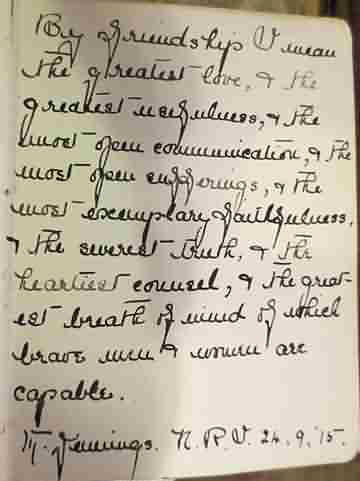 By friendship I mean
the greatest love, & the
greatest usefulness, & the
most open communication, & the
most open sufferings, & the
most exemplary faithfulness,
& the severest truth, & the
heartiest counsel, & the great-
est breath of mind of which
brave men & women are
capable.
M. Jennings. N. R. V. 24. 9. '15.